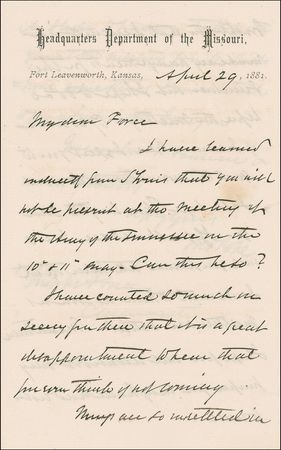 Headquarters Department of the Missouri,
Fort Leavenworth, Kansas, April 29, 1881.
My dear Force
I have learned
indirectly from St Louis that you will
not be present at the meeting of
the Army of the Tennessee on the
10" & 11" May - Can this be so?
I have counted so much on
seeing you there that it is a great
disappointment to hear that
you even think of not coming
are so unsettled in